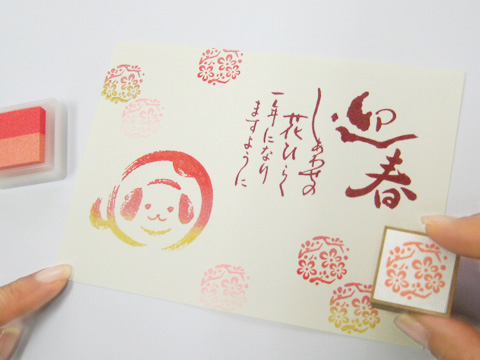 迎春
しあわせの
花ひらく
一年になり
ますように